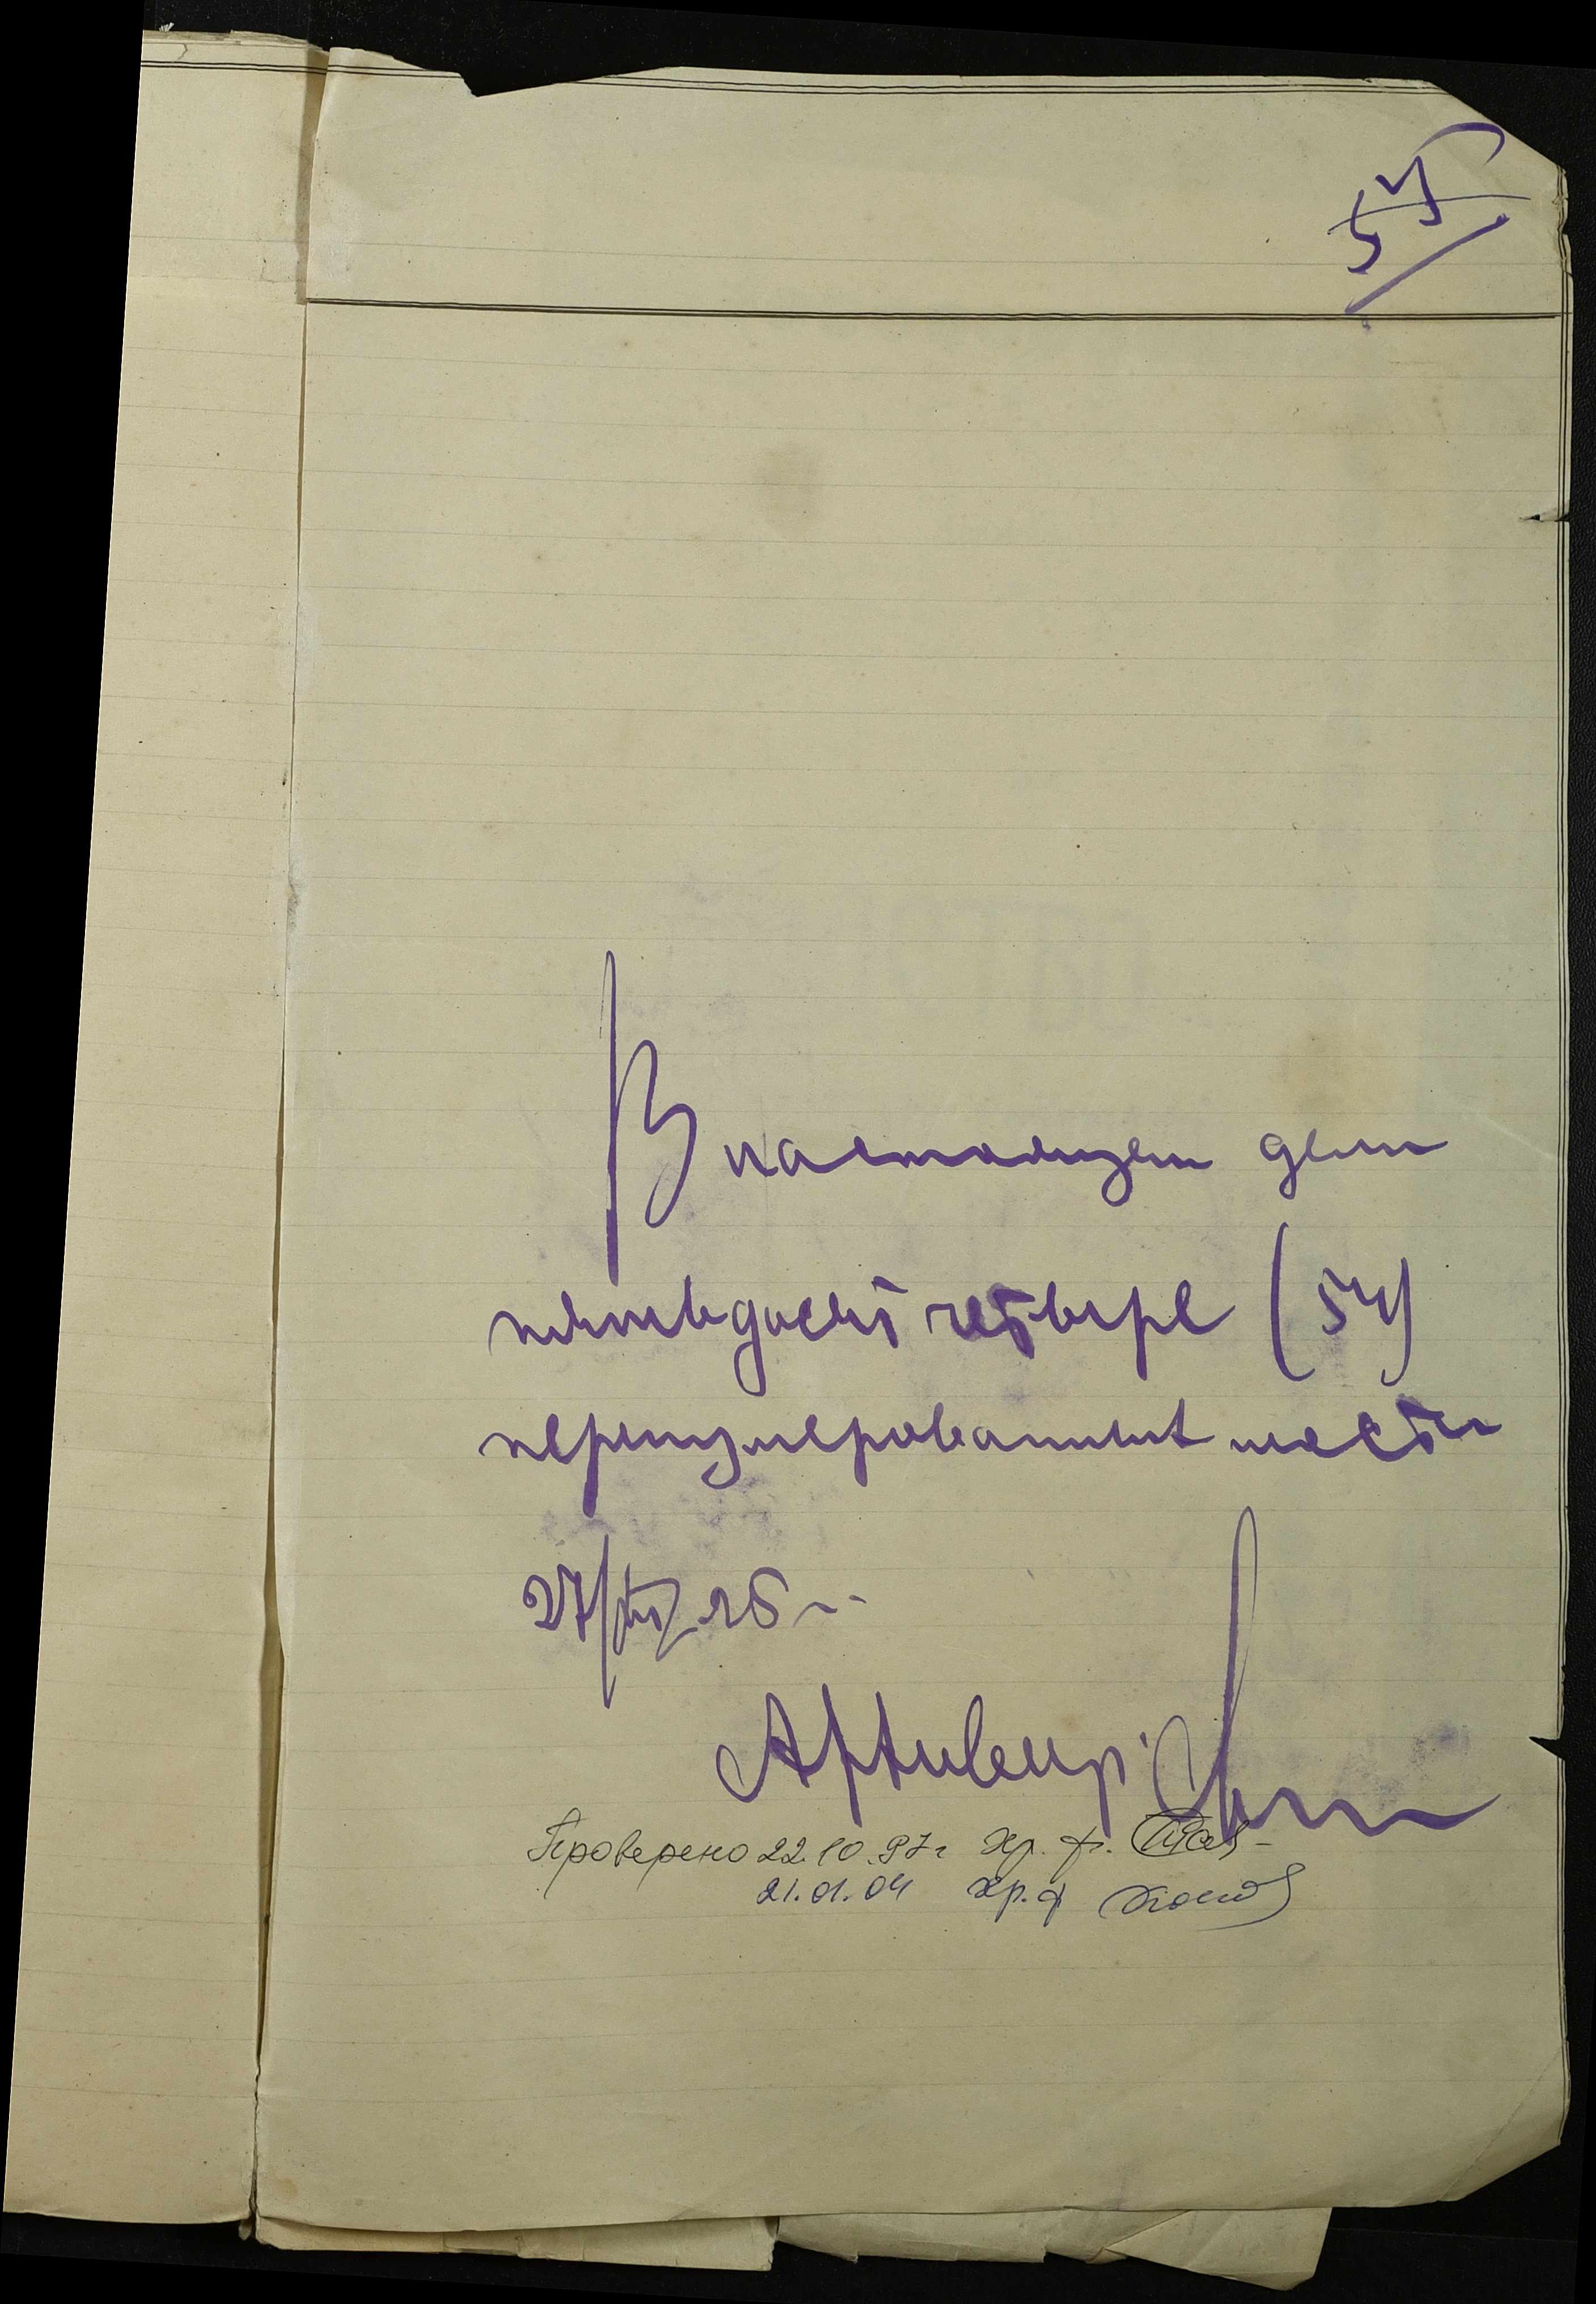 54
В настоящем деле
пятьдесят четыре (54)
перенумерованных листа
27/VII 26 г.
Архивариус
Проверено 22.10.97г хр. ф.
21.01.04 хр. ф